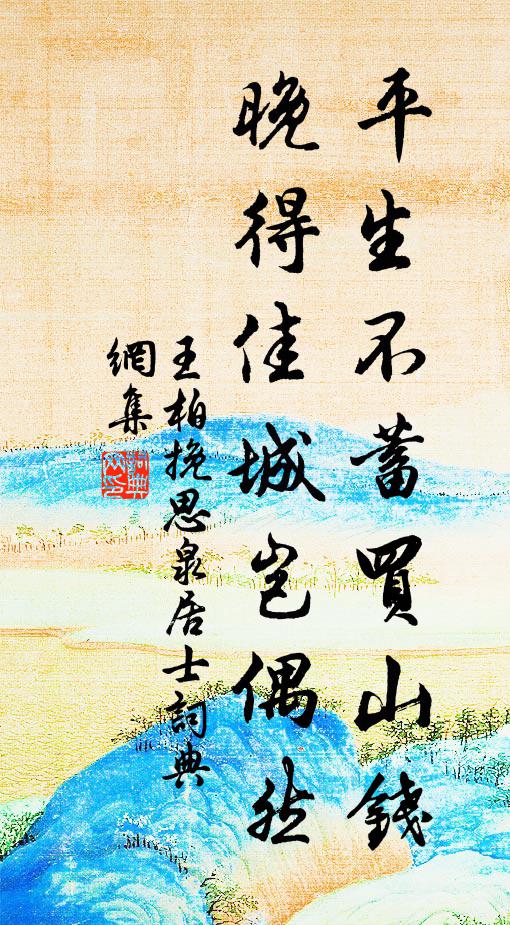 平生不蓄買山錢
晚得佳城岂偶然
王柏挽思泉居士詞典
網集
詞典